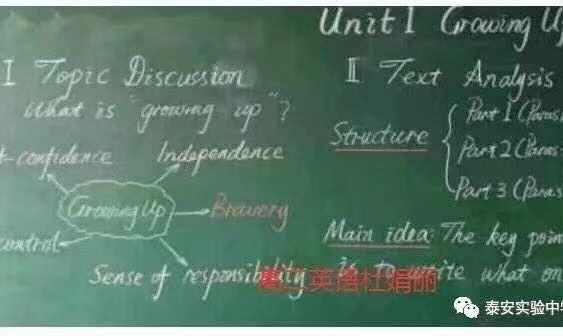 Unit 1 Growing Up
I Topic Discussion
What is "growing up"?
-confidence
Independence
Growing Up
Bravery
control
Sense of responsibility
II Text Analysis
Structure
Part 1 (Paras
Part 2 (Paras
Part 3 (Paras
Main idea: The key point
is to write what on
英语杜娟丽
泰安实验中学